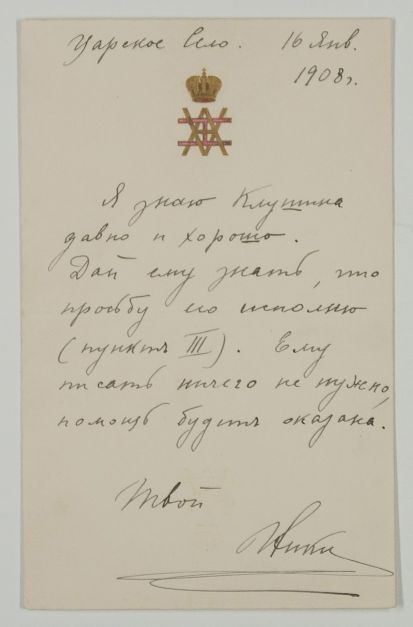 Царское Село. 16 Янв.
1908г.
Я знаю Клушина
давно и хорошо.
Дай ему знать, что
просьбу его исполню
(пунктъ III). Ему
писать ничего не нужно,
помощь будетъ оказана.
Твой
Ники